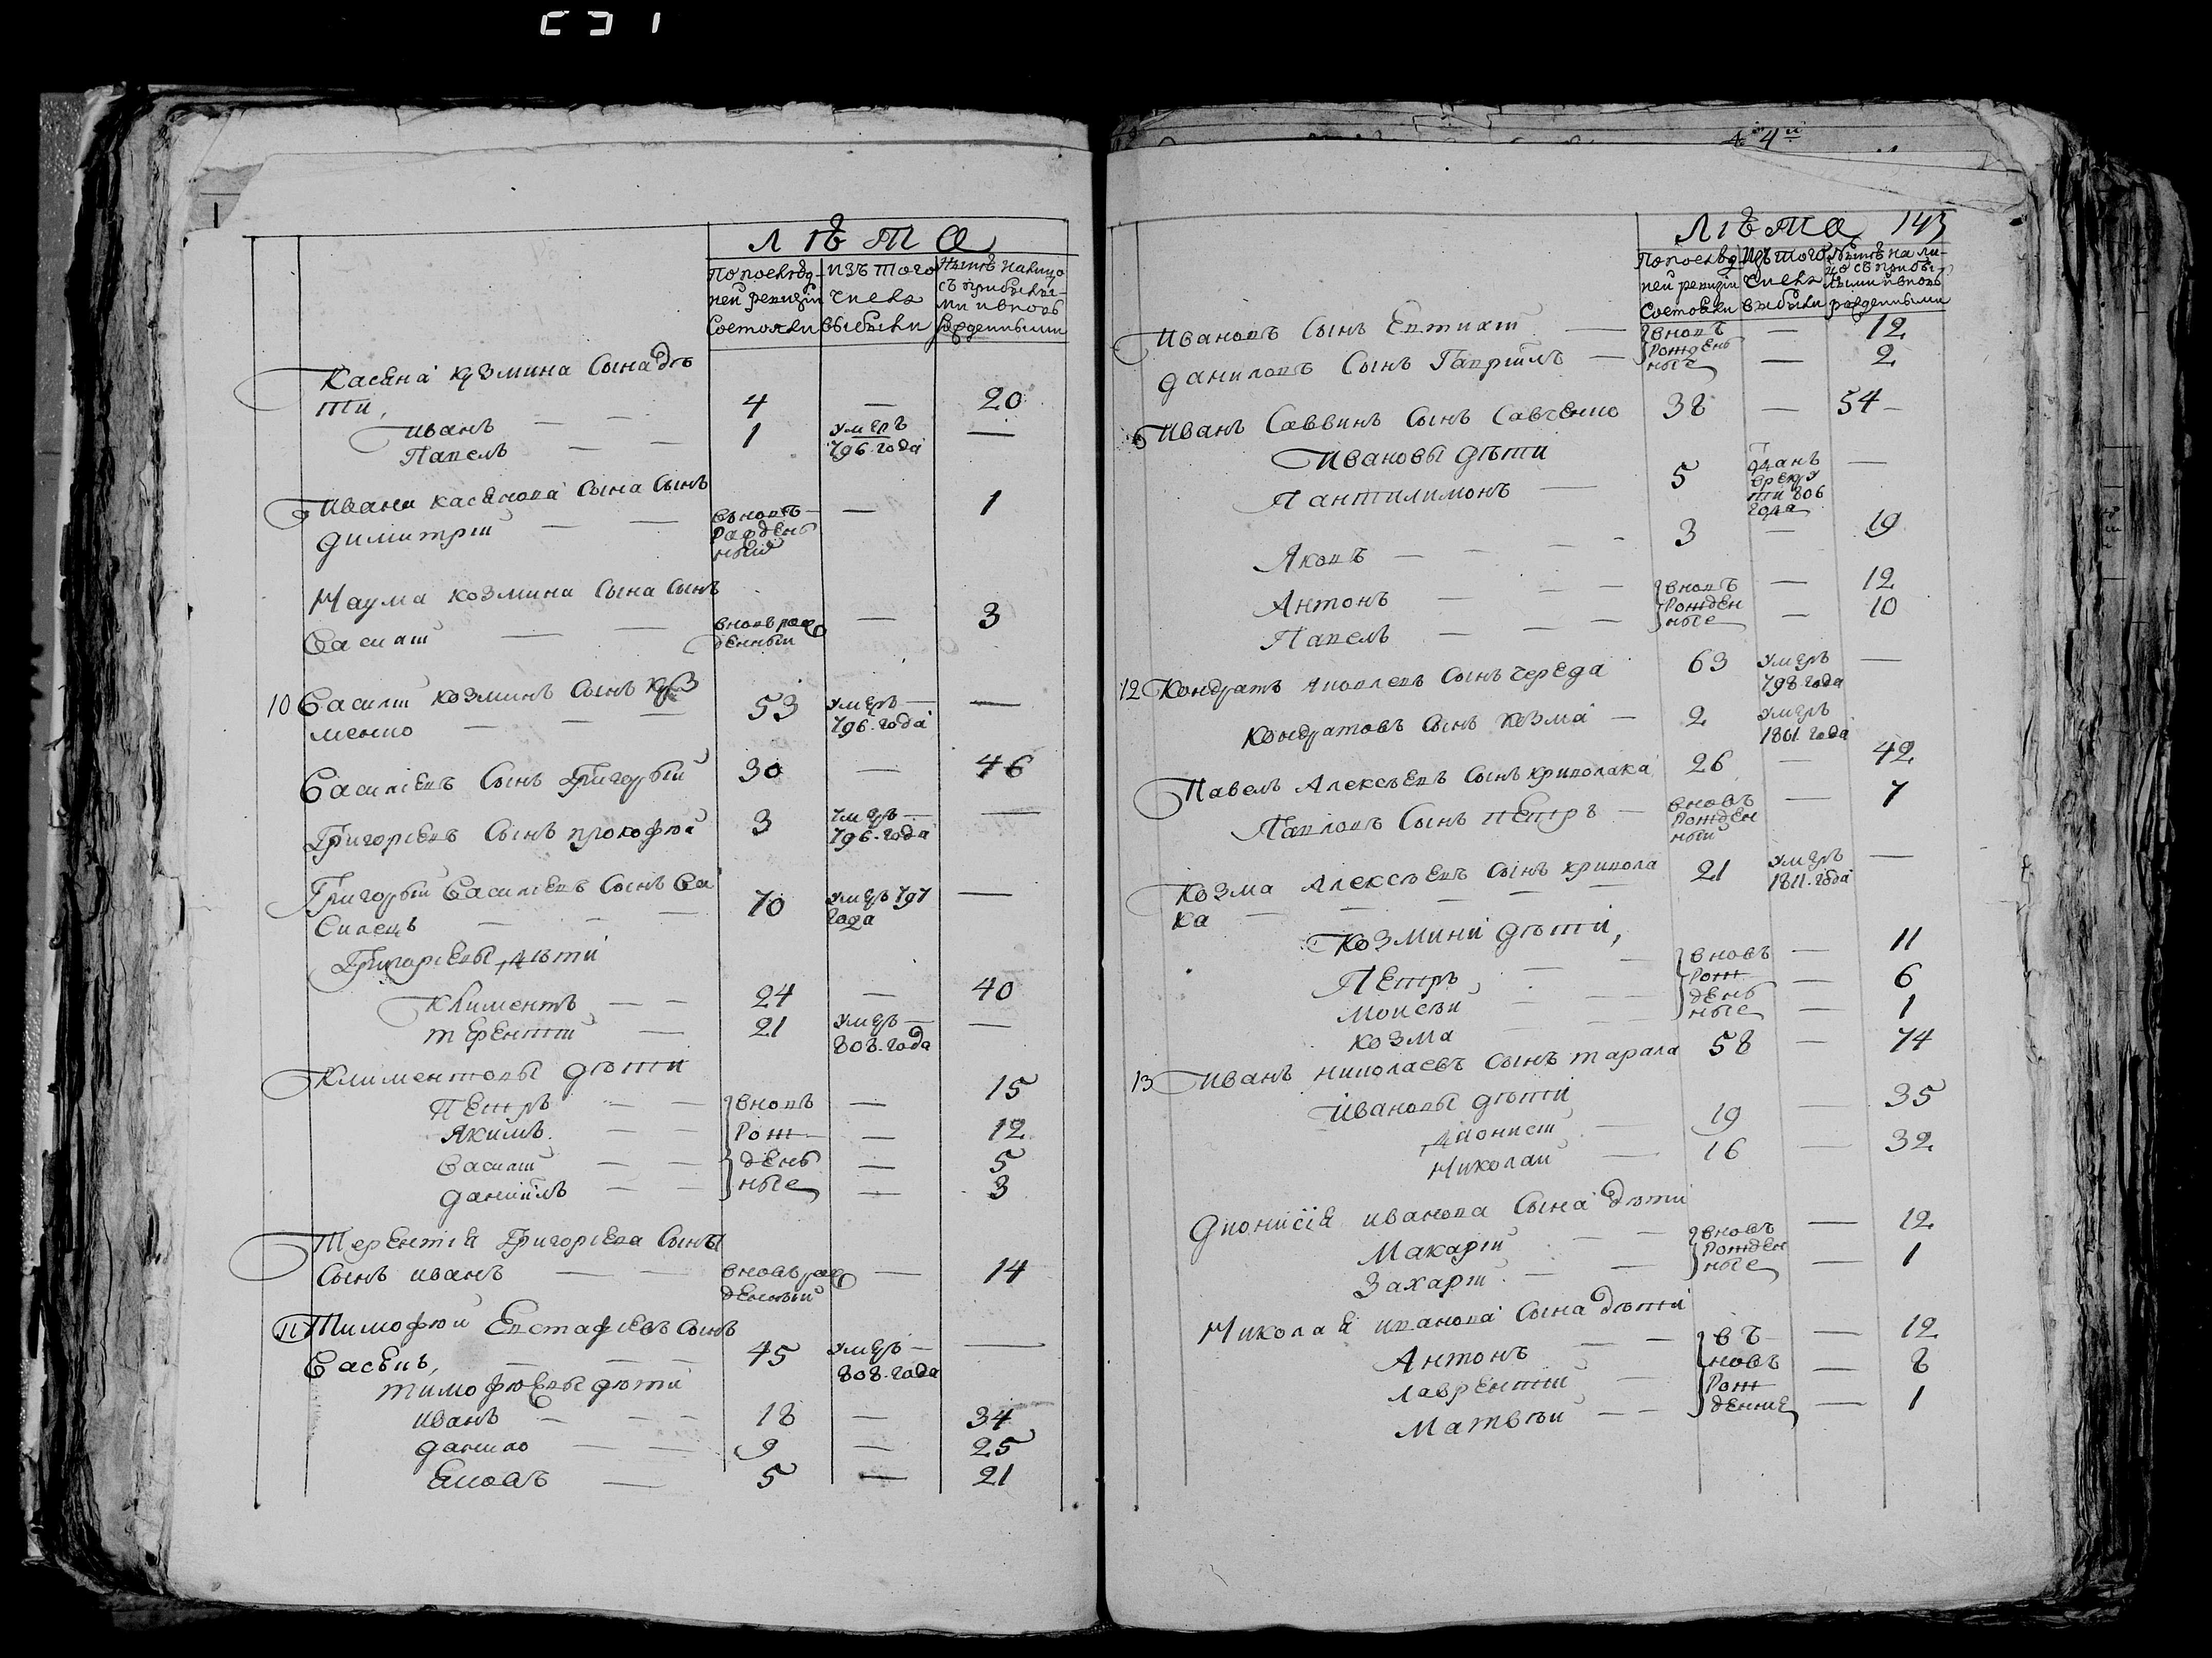 ЛѢТА
По послѣд-
ней ревизіи
состояли
изъ того
числа
выбыли
Нынѣ налицо
съ прибылы-
ми и вновь
рожденными
Касяна Кузмина сына дѣ
ти,
Иванъ — 4 — 20
Павелъ — 1 умеръ
796. года —
Ивана Касянова сына сынъ
Димитрій — вновь
рожден
ный — 1
Наума Козмина сына сынъ
Василій — вновь рож
денный — 3
10 Василій Козминъ сынъ Куз
менко — 53 умеръ —
796. года —
Васильевъ сынъ Григорій 30 — 46
Григорьевъ сынъ Прокофѣй 3 умеръ —
796. года —
Григорій Васильевъ сынъ Ва
силецъ — 70 умеръ 797
года —
Григорьевы дѣти
Климентъ — 24 — 40
Терентій — 21 умеръ —
808. года —
Климентовы дѣти
Петръ — вновь — 15
Якимъ — рож — 12
Василій — день — 5
Даніилъ — ные — 3
Терентія Григорьева сына
сынъ Иванъ — вновь рож
денный — 14
11 Тимофѣй Евстафіевъ сынъ
45 умеръ —
808. года —
Тимофѣевы дѣти
Иванъ — 18 — 34
Данило — 9 — 25
Яковъ — 5 — 21
ЛѢТА 143
По послѣд-
ней ревизіи
состояли
Изъ того
числа
выбыли
Нынѣ на ли-
цо съ прибы-
лыми и вновь
рожденными
Ивановъ сынъ Евтихій — вновь — 12
Даниловъ сынъ Гавріилъ — рожден
ные — 2
Иванъ Саввинъ сынъ Савченко 38 — 54 —
Ивановы дѣти
Пантилимонъ — 5 отданъ
в рекру
ти 806
года —
Яковъ — 3 — 19
Антонъ — вновь — 12
Павелъ — рожден
ные — 10
12 Кондратъ Яковлевъ сынъ Череда 63 умеръ
798. года —
Кондратовъ сынъ Козма — 2 умеръ
1801. года
Павелъ Алексѣевъ сынъ Криволака 26 — 42
Павловъ сынъ Петръ — вновь
рожден
ный — 7
Козма Алексѣевъ сынъ Кривола
ка — 21 умеръ
1811. года —
Козмини дѣти,
Петръ, — вновь — 11
Моисѣй — рож
день — 6
Козма — ные — 1
13 Иванъ Николаевъ сынъ Тарала 58 — 74
Ивановы дѣти
Діонисій — 19 — 35
Николай — 16 — 32
Дионисія Иванова сына дѣти
Макарій — вновь — 12
Захарій — рожден
ные — 1
Николая Иванова сына дѣти
Антонъ — въ — 12
Лаврентій — новь — 8
Матвѣй — рож
денние — 1